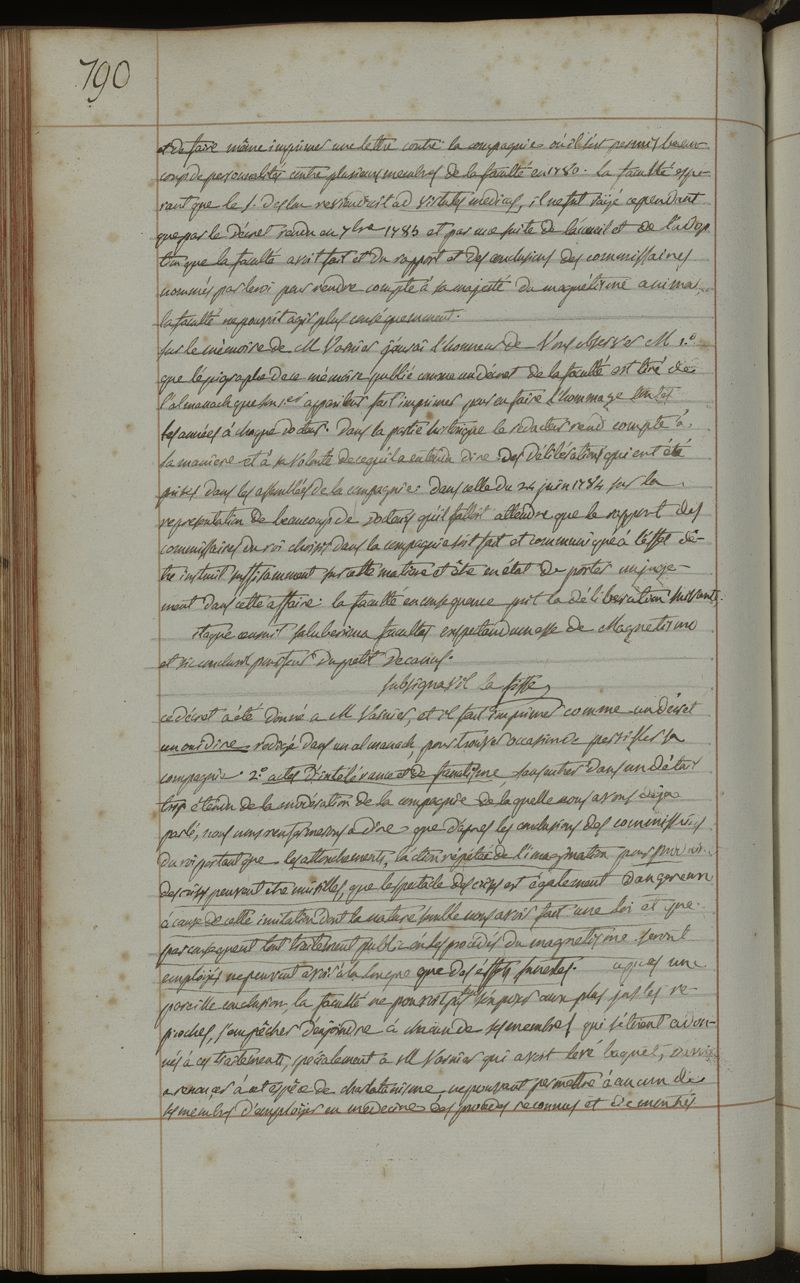 790
et de faire même imprimer une lettre contre la compagnie où il s'est permis beau-
coup de personalités contre plusieurs membres de la faculté en 1780. La faculté espe-
rant que le s. Deslon reviendroit ad virtutes medicas, il ne fut rayé cependant
que par le Décret rendu en 7bre 1784 et par une suite de l'accueil et de l'adop
tion que la faculté avoit fait et du rapport et des conclusions des commissaires
nommés par le roi pour rendre compte à sa majesté du magnétisme animal,
la faculté ne pouvoit agir plus conséquemment.
sur le mémoire de M Varnier j'aurai l'honneur de Vous observer M 1.°
que l'épigraphe de ce mémoire publié comme un décret de la faculté est tiré de
l'almanach que son 1er appariteur fait imprimer pour en faire l'hommage toutes
les années à chaque docteur. Dans la partie historique le redacteur rend compte à
sa maniere et à sa volonté de ce qu'il a entendu dire des délibérations qui ont été
prises dans les assemblées de la compagnie: dans celle du 24 juin 1784 sur la
representation de beaucoup de docteurs qu'il falloit attendre que le rapport des
commissaires du roi choisis dans la compagnie soit fait et communiqué à l'effet d'ê-
tre instruit suffisamment sur cette matiere et être en état de porter un juge-
ment dans cette affaire: la faculté en consequence prit la délibération suivante.
itaque censuit saluberrima facultas expectandum esse de Magnetismo
et sic conclusit
subsignavit le
ce décret a été donné a M Varnier, et il fait imprimer comme un décret
un oui dire redigé dans un almanach, pour trouver occasion de persifler sa
compagnie. 2.° actes d'intolérance et de fanatisme, sans entrer dans un détail
trop étendu de la modération de la compagnie de laquelle nous avons déja
parlé, nous nous renfermerons à dire que d'apres les conclusions des commissaires
du roi portant que les attouchements, l'action répétée de l'imagination pour produire
des crises peuvent être nuisibles, que le spectacle des crises est également dangereux
à cause de cette imitation dont la nature semble nous avoir fait une loi et que
par consequent tout traitement public où les procédés du magnetisme seront
employés ne peuvent avoir à la longue que des effets funestes. apres une
pareille conclusion, la faculté ne pouvoit, sans s'exposer aux plus justes re-
proches, s'empêcher d'enjoindre à chacun de ses membres qui s'étoient adon-
nés à ces traitements, specialement à M Varnier qui avoit levé baquet,
a renoncer à cet espèce de charlatanisme ne pouvant permettre à aucun de
ses membres d'employer en médecine des procédés reconnus et démontrés